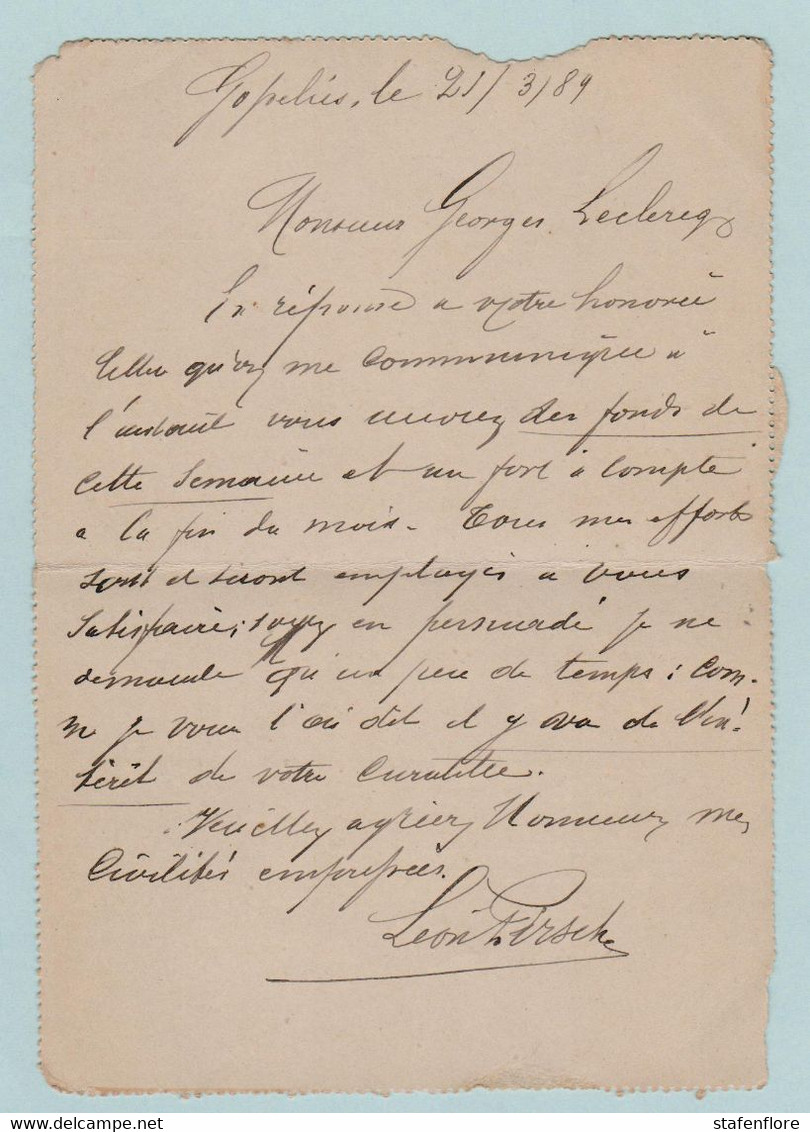 Gosselies, le 21/3/89
Monsieur Georges Leclercq
En réponse a votre honorée
lettre qu'on me communique à
l'instant vous aurez des fonds de
cette semaine et un fort à compte
a la fin du mois. Tous mes efforts
sont et seront employés a vous
satisfaire; soyez en persuadé je ne
demande qu'un peu de temps: com-
me je vous l'ai dit il y va de l'in-
térêt de votre
Veuillez agréer, Monsieur, mes
civilités empressées.
Léon
stafenflore